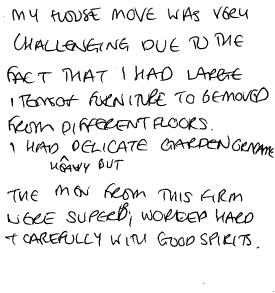 MY HOUSE MOVE WAS VERY
CHALLENGING DUE TO THE
FACT THAT I HAD LARGE
ITEMS OF FURNITURE TO BE MOVED
FROM DIFFERENT FLOORS.
I HAD DELICATE GARDEN ORNATE
^ HEAVY BUT
THE MEN FROM THIS FIRM
WERE SUPERB; WORKED HARD
+ CAREFULLY WITH GOOD SPIRITS.